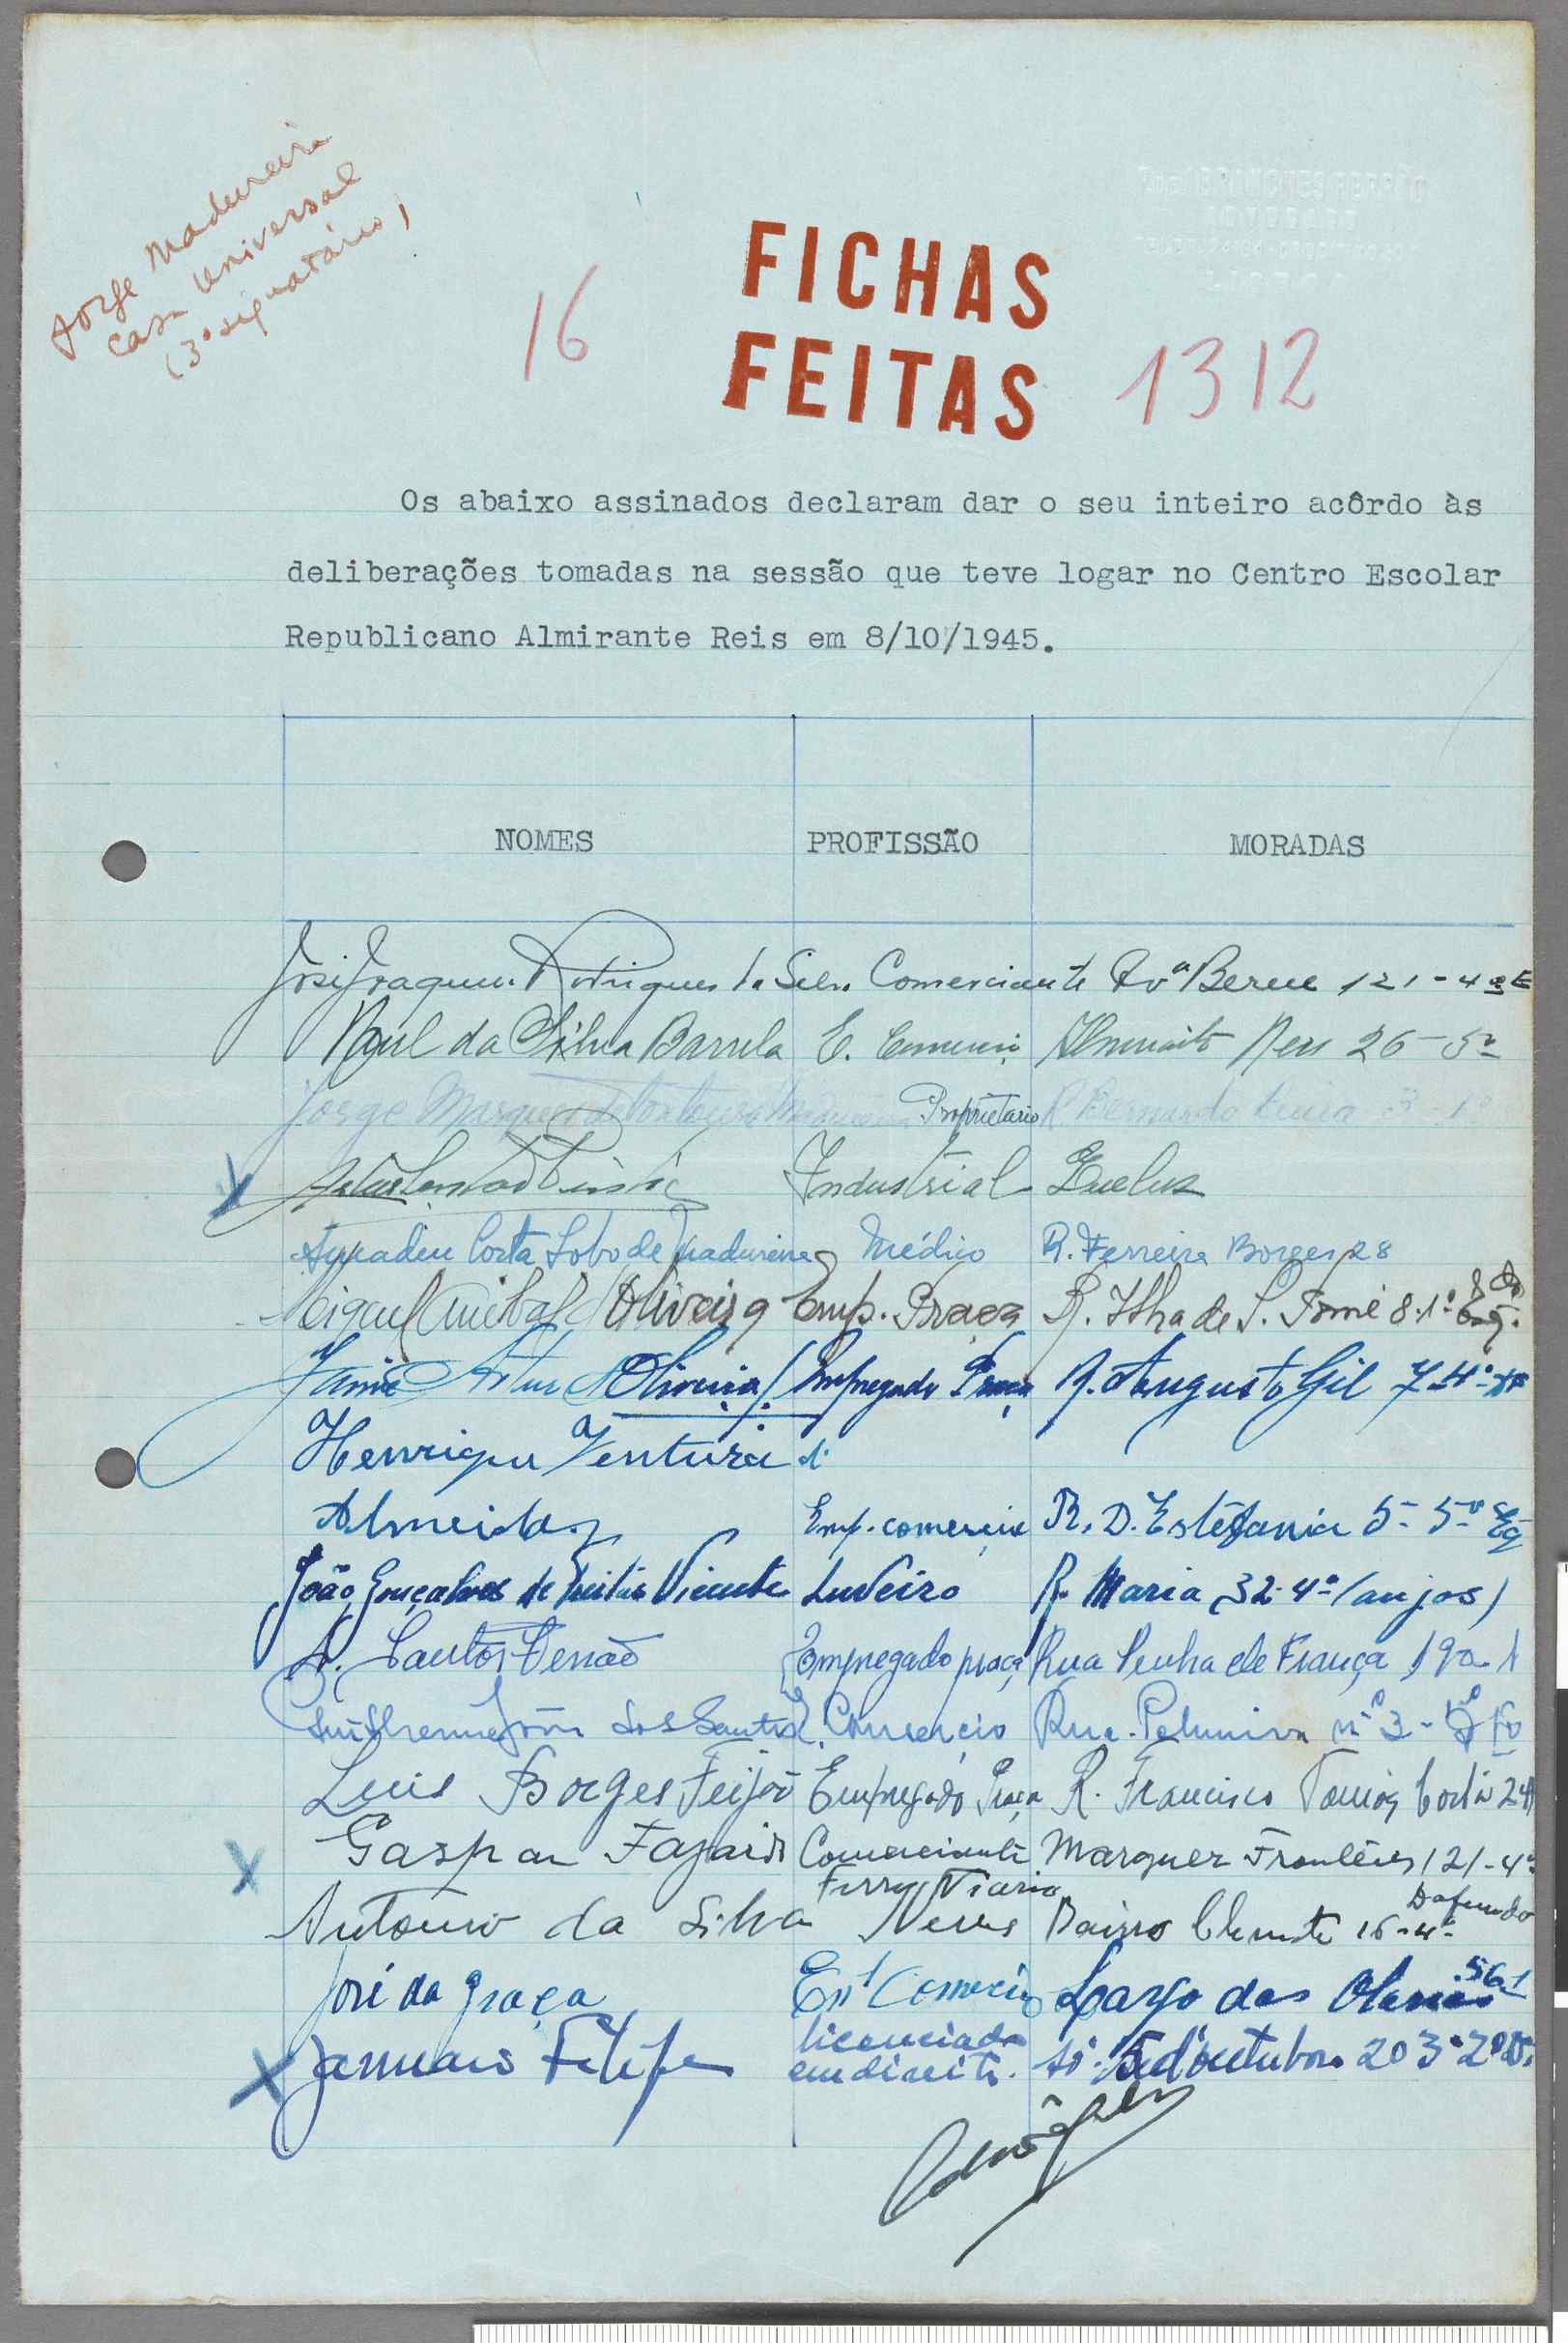 Jorge Madureira
Casa Universal
(3º signatário)
16
FICHAS
FEITAS
1312
Os abaixo assinados declaram dar o seu inteiro acôrdo às
deliberações tomadas na sessão que teve logar no Centro Escolar
Republicano Almirante Reis em 8/10/1945.
NOMES PROFISSÃO MORADAS
José Joaquim Rodrigues da Silva Comerciante Avª Berne 121-4º E
Raul da Silva Barrela E. Comercio Almirante Reis 26-5º
Jorge Marques Proprietario R Bernardo Lima 3 1º
Pinto Industrial Queluz
Amadeu Costa Lobo de Madureira Médico R. Ferreira Borges 28
Miguel Anibal d'Oliveira Emp. Praça R. Ilha de S. Tomé 8-1º Esq.
Jaime Artur d'Oliveira Empregado Praça R. Augusto Gil 7-4º
Henrique Ventura d'
Almeida Emp. comercio R. D. Estefania 5-5º Eq
João Gonçalves de Freitas Vicente Luveiro R. Maria 32-4º (anjos)
A. Santos Empregado praça Rua Penha de França 190-1
Guilherme João dos Santos E. Comercio Rua nº 3
Luis Borges Feijoó Empregado Praça R. Francisco Tomás Costa 24
Gaspar Fajardo Comerciante Marques Fronteira 121-4º
Antonio da Silva Neves Ferro Viario Bairro Clemente 16-4º Dafundo
José da Graça Emp Comercio Largo das Olarias 56-1
Januario Filipe licenciado
em direito. Av. 5 d'outubro 203-2º D.